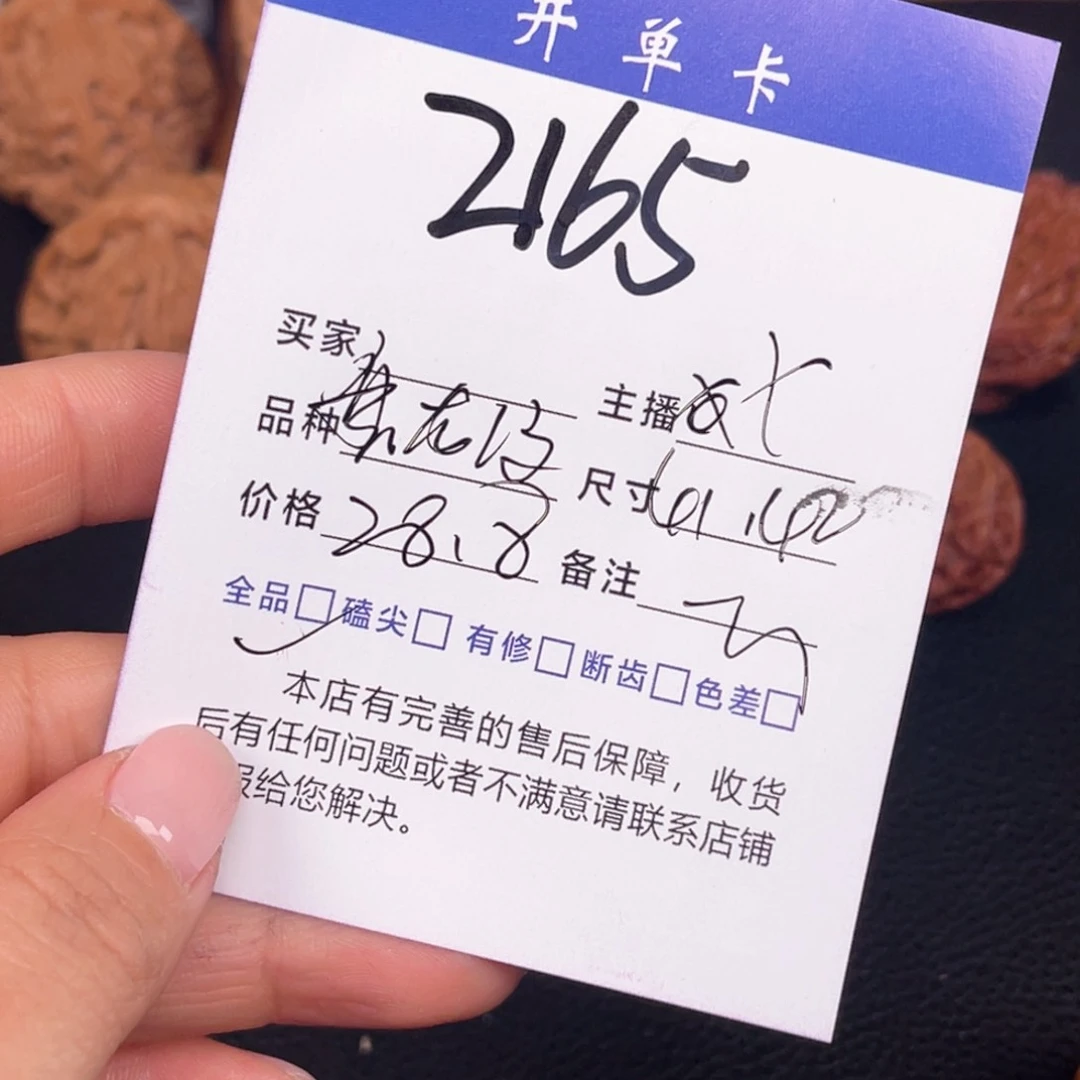 开单卡
2165
买家 主播
品种 尺寸
价格 28.8 备注
全品□磕尖□ 有修□断齿□色差□
本店有完善的售后保障，收货
后有任何问题或者不满意请联系店铺
给您解决。